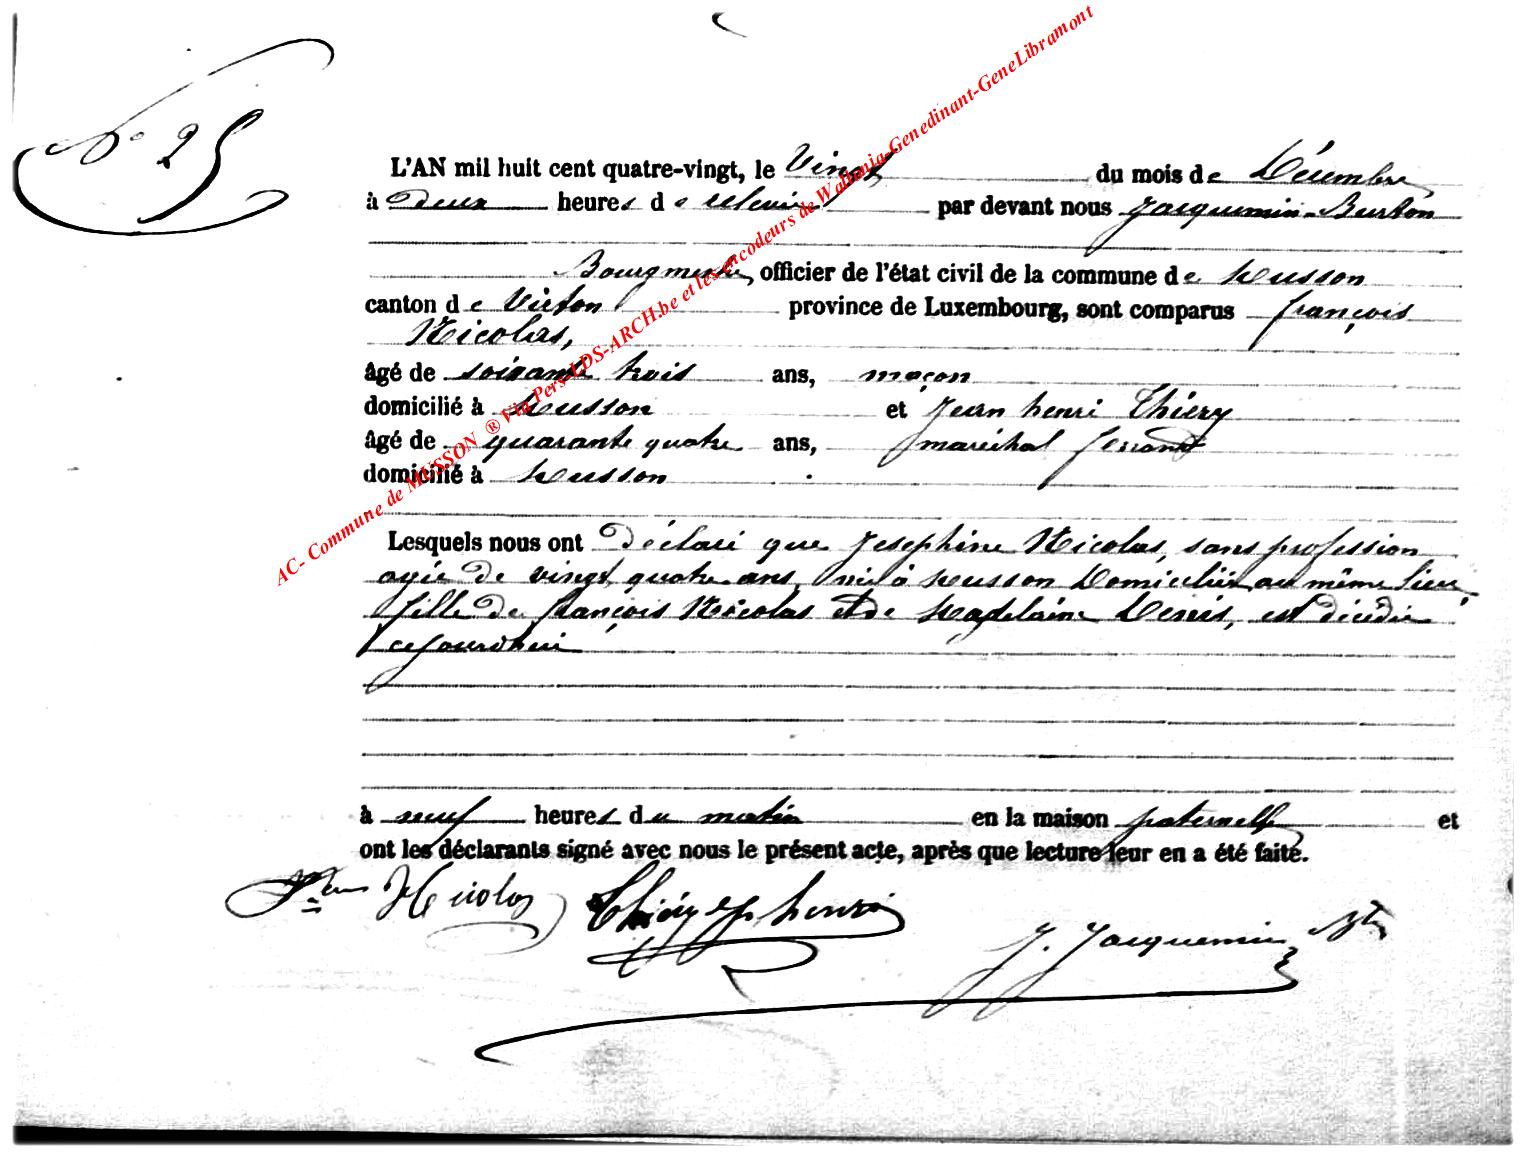 N° 25
L'AN mil huit cent quatre-vingt, le Vingt du mois de Décembre
à Deux heures de relevée par devant nous Jacquemin-Burton
Bourgmestre, officier de l'état civil de la commune de Musson
canton de Virton province de Luxembourg, sont comparus françois
Nicolas,
âgé de soixante trois ans, maçon
domicilié à Musson et Jean henri Thiéry
âgé de quarante quatre ans, maréchal ferrant
domicilié à Musson
Lesquels nous ont Déclaré que Josephine Nicolas, sans profession
agée de vingt quatre ans, née à Musson Domiciliée au même lieu,
fille de françois Nicolas et de Madelaine Denis, est décédée
cejourdhui
à neuf heures du matin en la maison paternelle et
ont les déclarants signé avec nous le présent acte, après que lecture leur en a été faite.
Nicolas Thiéry henri
J. Jacquemin Btn
AC- Commune de MUSSON ® Via Pers-LDS-ARCH.be et les encodeurs de Wallonia-Genedinant-GeneLibramont